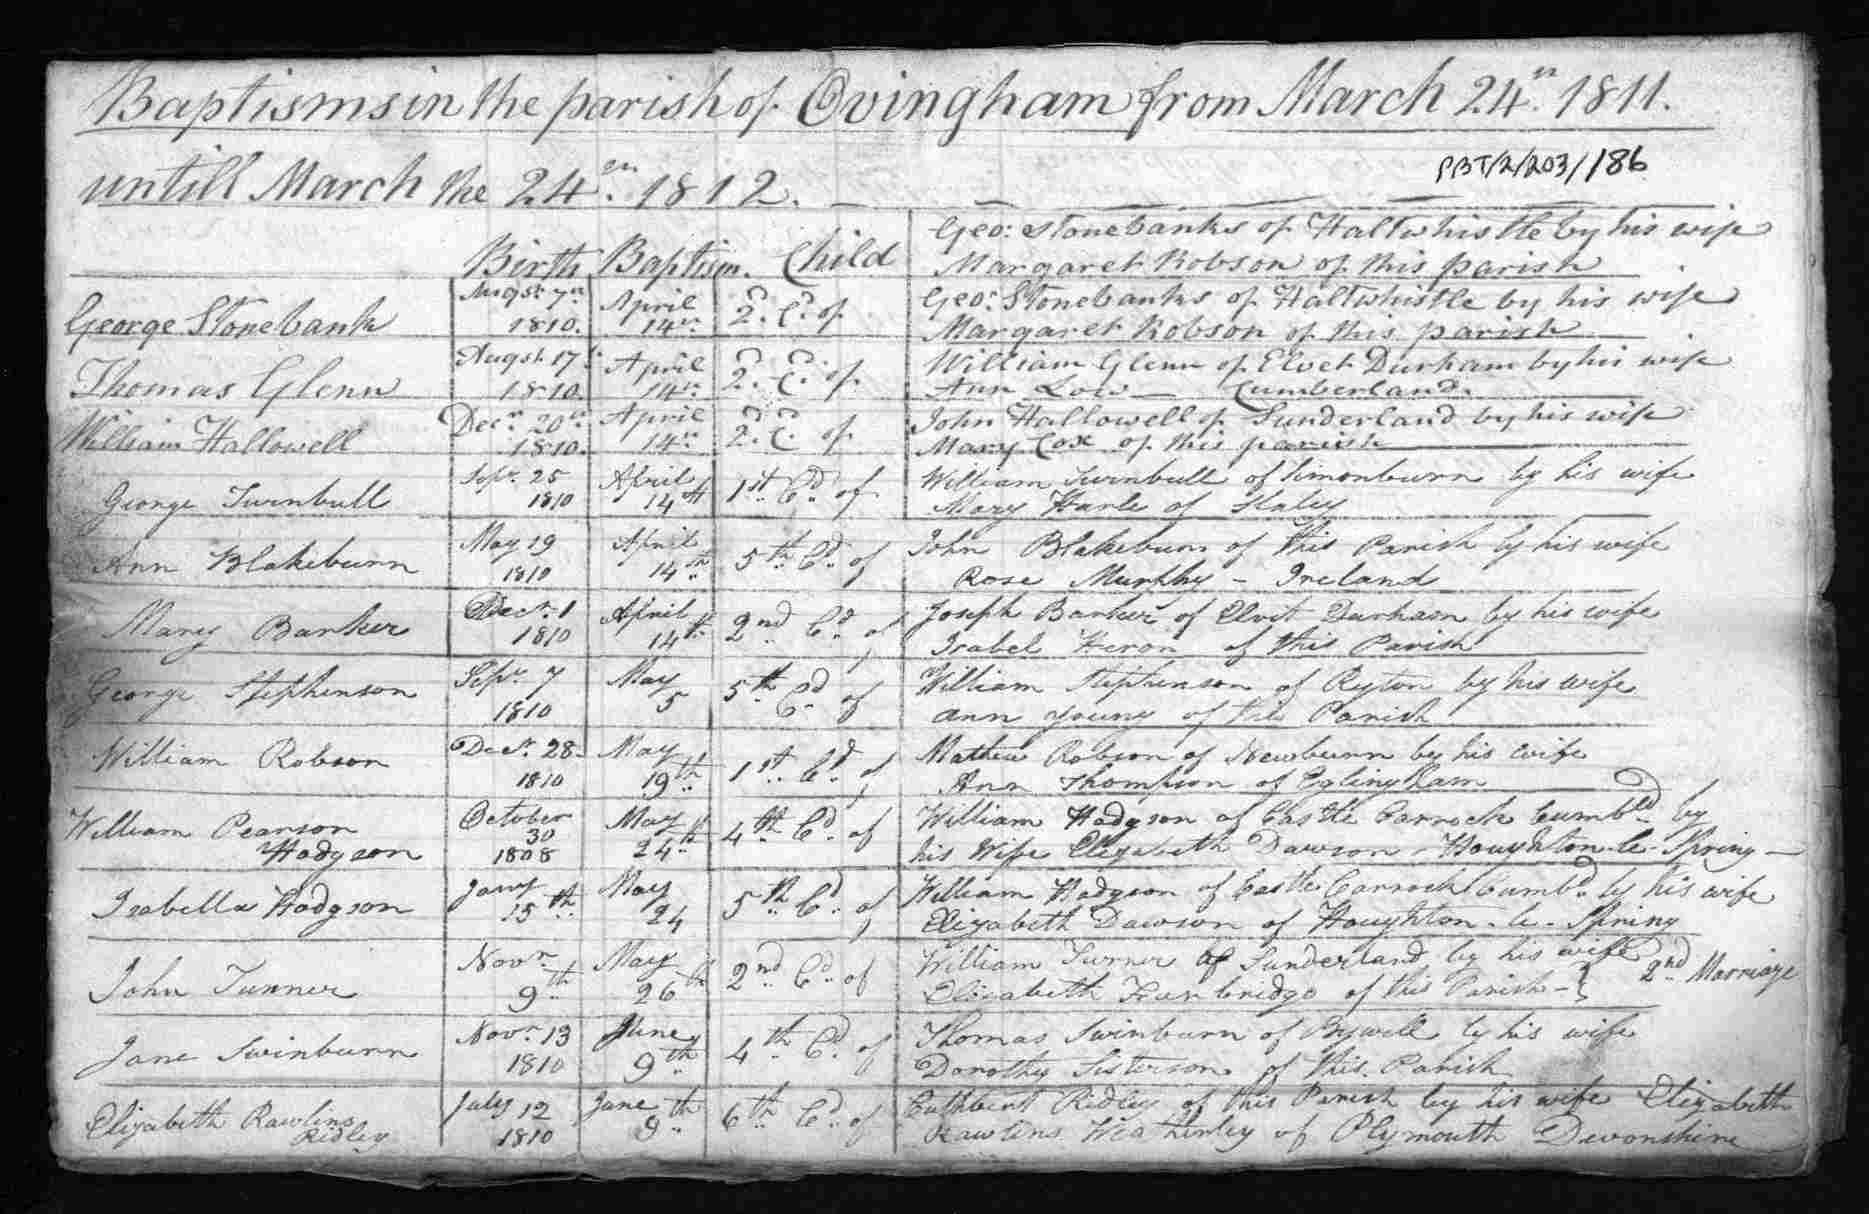 Baptisms in the parish of Ovingham from March 24.th 1811.
untill March the 24.th 1812.
PBT/2/203/186
Birth Baptism. Child
Geo: Stonebanks of Haltwhistle by his wife
Margaret Robson of this parish
George Stonebank
Augst 7th
1810.
April
14th
2d. Cd. of
Geo: Stonebanks of Haltwhistle by his wife
Margaret Robson of this parish
Thomas Glenn
Augst. 17th
1810
April
14th
2d. Cd. of
William Glenn of Elvet Durham by his wife
Ann Low — Cumberland.
William Hallowell
Decr. 20th
1810.
April
14th
2d. Cd. of
John Hallowell of Sunderland by his wife
Mary Cox of this parish
George Turnbull
Sepr. 25
1810
April
14th
1st. Cd. of
William Turnbull of Simonburn by his wife
Mary Harle of Slaley
Ann Blakeburn
May 19
1810
April
14th
5th. Cd. of
John Blakeburn of this Parish by his wife
Rose Murphy - Ireland
Mary Barker
Decr. 1
1810
April
14th
2nd. Cd. of
Joseph Barker of Elvet Durham by his wife
Isabel Heron of this Parish
George Stephenson
Sepr. 7
1810
May
5
5th Cd of
William Stephenson of Ryton by his wife
Ann Young of this Parish
William Robson
Decr. 28
1810
May
19th
1st. Cd. of
Mathew Robson of Newburn by his wife
Ann Thompson of Eglingham
William Pearson
Hodgson
October
30
1808
May
24th
4th. Cd. of
William Hodgson of Castle Carrock Cumbd. by
his Wife Elizabeth Dawson Houghton-le-Spring —
Isabella Hodgson
Jany
15th
May
24
5th. Cd. of
William Hodgson of Castle Carrock Cumbd. by his wife
Elizabeth Dawson of Houghton-le-Spring
John Turner
Novr.
9th
May
26th
2nd. Cd. of
William Turner of Sunderland by his wife
Elizabeth of this Parish -
2nd. Marriage
Jane Swinburn
Novr. 13
1810
June
9th
4th. Cd. of
Thomas Swinburn of Bywell by his wife
Dorothy Sisterson of this Parish
Elizabeth Rawlins
Ridley
July 12
1810
June
9th
6th. Cd. of
Cuthbert Ridley of this Parish by his wife Elizabeth
Rawlins Weatherley of Plymouth Devonshire